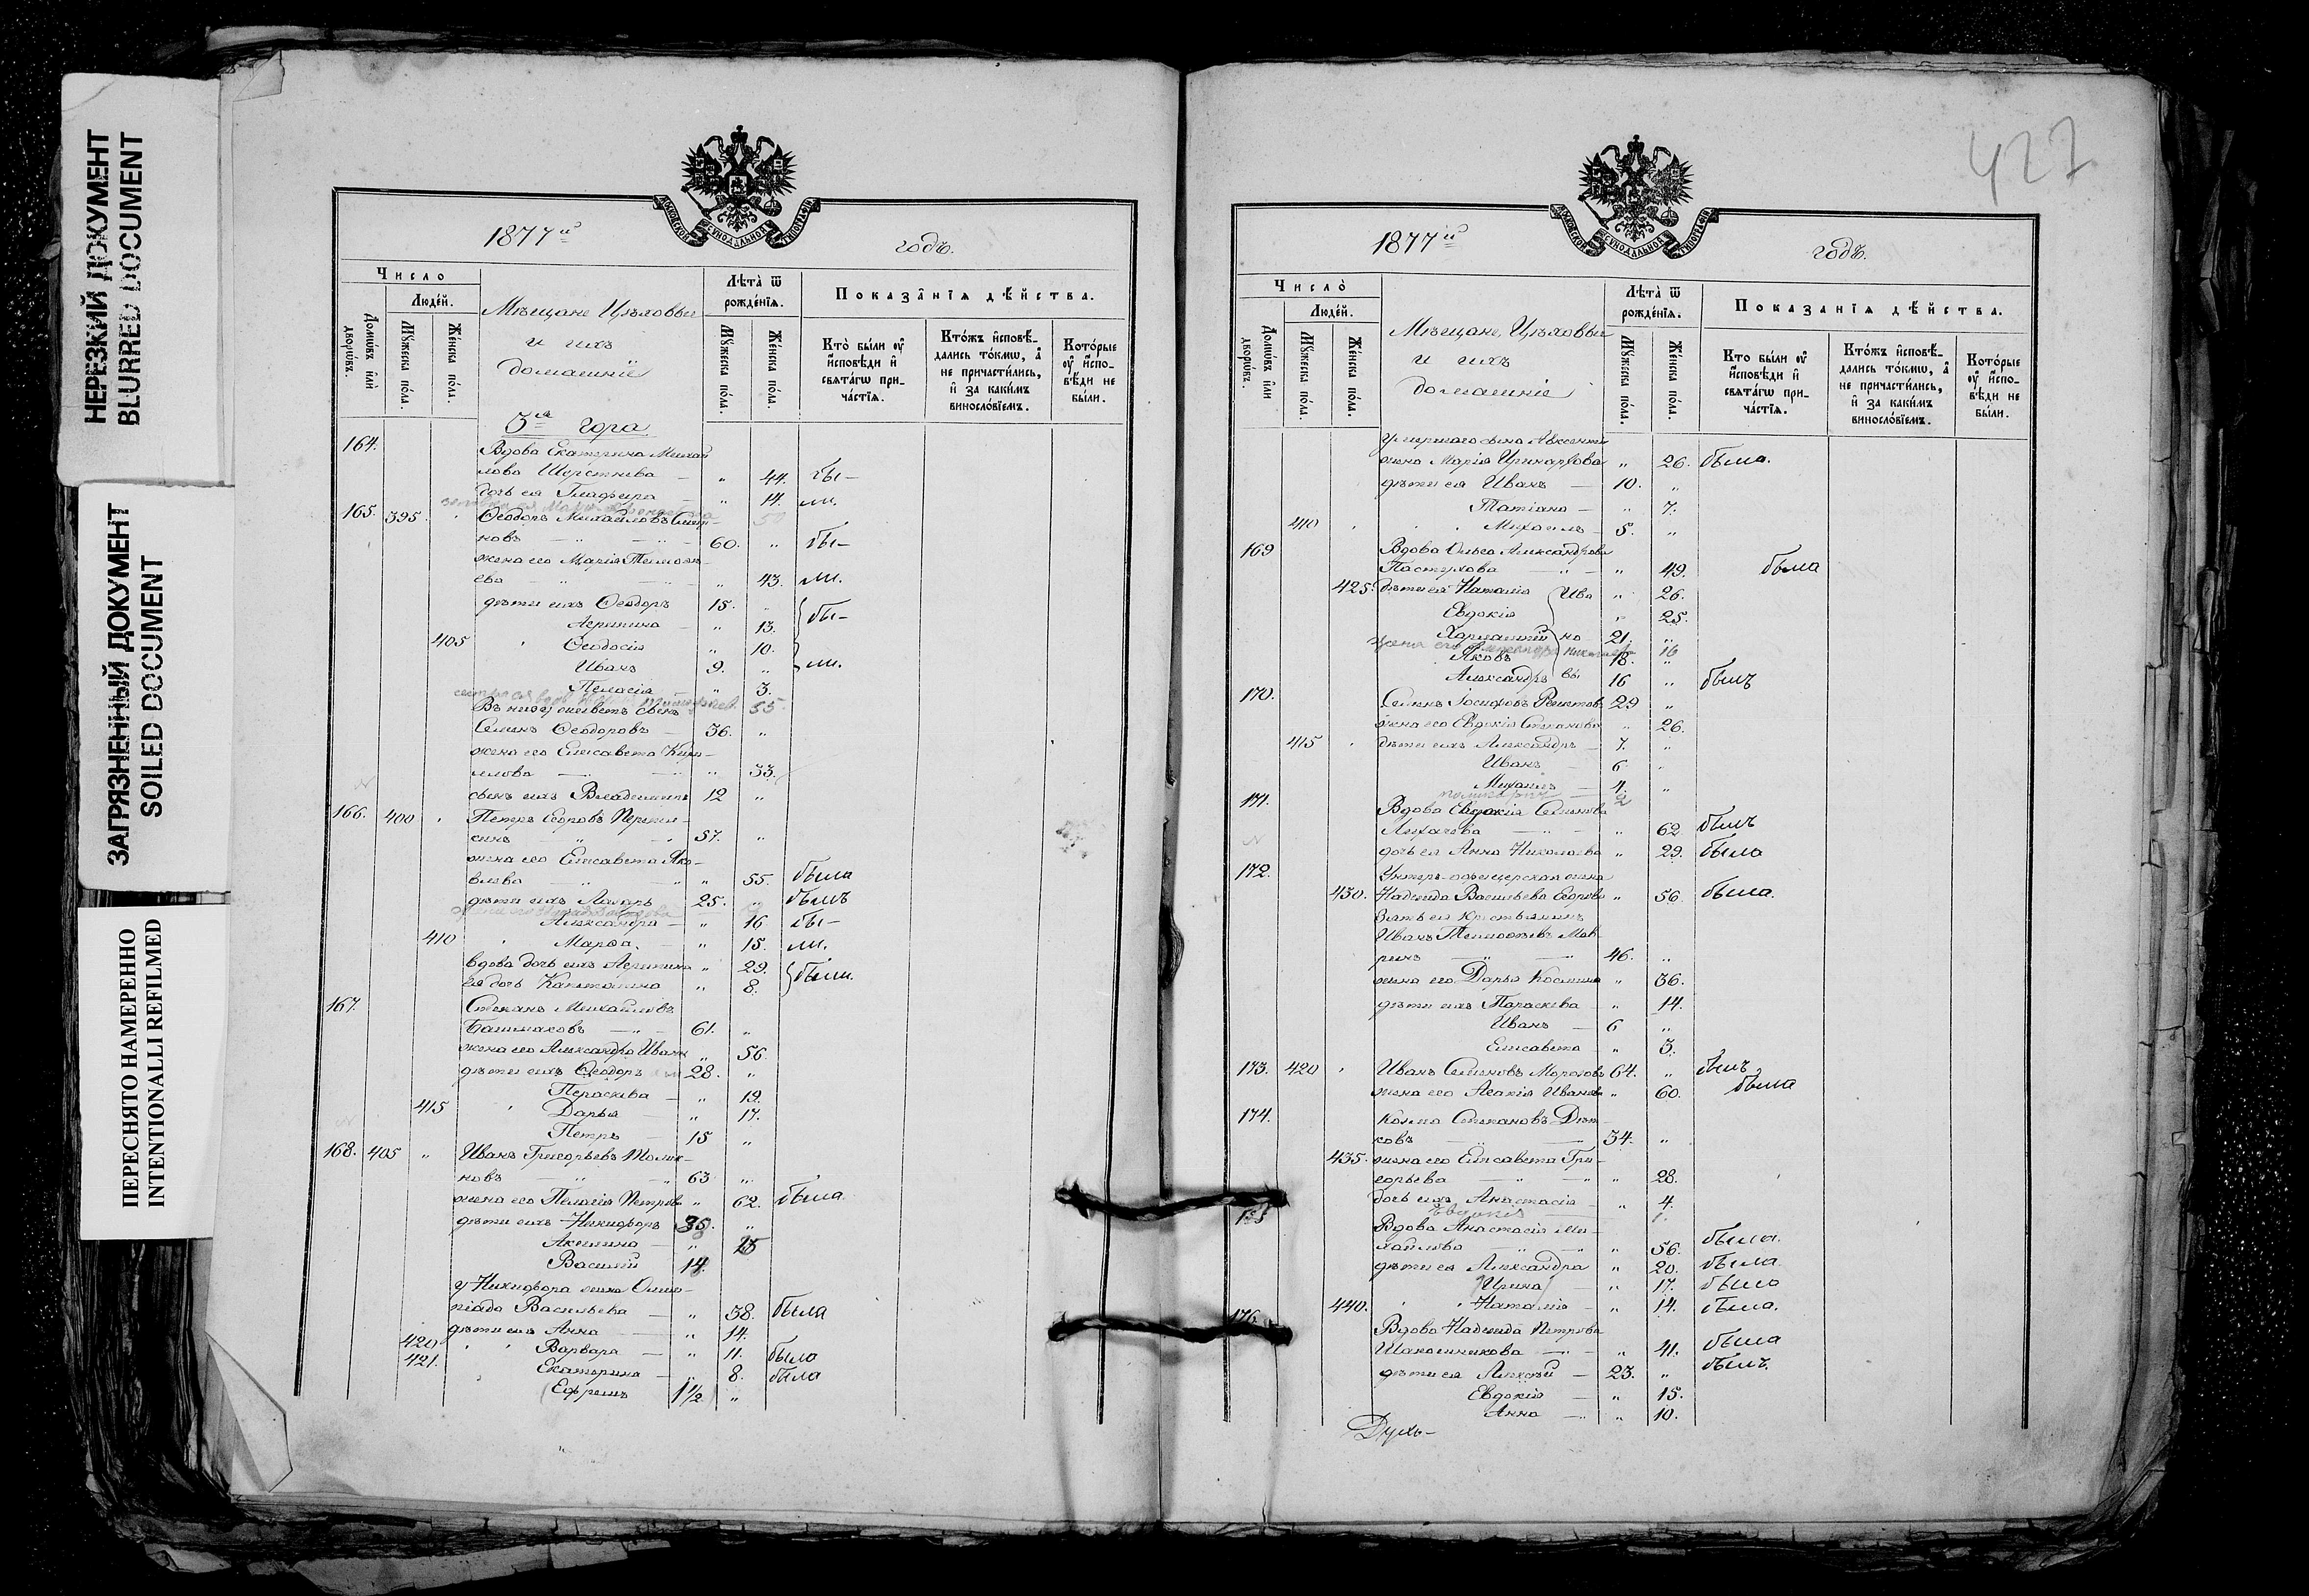 НЕРЕЗКИЙ ДОКУМЕНТ
BLURRED DOCUMENT
ЗАГРЯЗНЕННЫЙ ДОКУМЕНТ
SOILED DOCUMENT
ПЕРЕСНЯТО НАМЕРЕННО
INTENTIONALLI REFILMED
МОСКОВСКОЙ СѴНОДАЛЬНОЙ ТИПОГРАФІИ
1877й годъ.
Число
Людей.
Домѡвъ или дворѡвъ.
Мужеска пола.
Женска пола.
Мѣщане Цѣховые
и ихъ
домашніе
Лѣта ѿ рожденія.
Мужеска пола.
Женска пола.
Показанія дѣйства.
Кто были оу исповѣди и свѧтагѡ причастіѧ.
Ктожъ исповѣдались токмѡ, а не причастились, и за какимъ винословіемъ.
Которые оу исповѣди не были.
3я гора
164. Вдова Екатерина Михай
лова Шерстнева — " 44. бы—
дочь ея Глафира — " 14. ли.
165. 395 " Ѳеодоръ Михайловъ
новъ — 60. " бы—
жена его Марія Тимоѳе
ева — " 43. ли.
дѣти ихъ Ѳеодоръ 15. " бы—
Агрипина — " 13.
405 " Ѳеодосія " 10.
Иванъ 9. " ли.
Пелагія " 3.
55
сынъ
Семенъ Ѳеодоровъ — 36. "
жена его Елисавета Кири—
лова — " 33.
сынъ ихъ Владиміръ 12 "
166. 400 " Петръ Егоровъ
57. "
жена его Елисавета Яко—
влева — " 55. была
дѣти ихъ Лазарь 25. " былъ
Александра — " 16 бы—
410 " Марѳа. — " 15. ли.
вдова дочь ихъ Агрипина " 29. были.
ея дочь Капитолина " 8.
167. Степанъ Михайловъ
Башмаковъ — 61. "
жена его Александра Иванов " 56.
дѣти ихъ Ѳеодоръ 28. "
Параскева — " 19.
415 " Дарья — " 17.
Петръ — 15 "
168. 405 " Иванъ Григорьевъ
новъ — 63 "
жена его Пелагія Петрова " 62. была
дѣти ихъ Никифоръ "
Акилина — "
Василій 14.
у Никифора жена Олим—
піада Васильева — " 38. была
дѣти ихъ Анна — " 14.
420 " " Варвара — " 11. была
421. " Екатерина — " 8. была
Ефремъ 1½ "
427
МОСКОВСКОЙ СѴНОДАЛЬНОЙ ТИПОГРАФІИ
1877й годъ.
Число
Людей.
Домѡвъ или дворѡвъ.
Мужеска пола.
Женска пола.
Мѣщане, Цѣховые
и ихъ
домашніе
Лѣта ѿ рожденія.
Мужеска пола.
Женска пола.
Показанія дѣйства.
Кто были оу исповѣди и свѧтагѡ причастіѧ.
Ктожъ исповѣдались токмѡ, а не причастились, и за какимъ винословіемъ.
Которые оу исповѣди не были.
умершаго сына Авксентія
жена Марія Иринархова " 26. была.
дѣти ея Иванъ — 10. "
Татіана — " 7.
410 " " Михаилъ — 5. "
169 Вдова Ольга Александрова
Пастухова — " 49. была
425. дѣти ея Наталія Ива " 26.
Евдокія " 25.
Харлампій но 21. "
жена его Александра 16
Яковъ 18. "
Александръ вы 16 " былъ
170. Семенъ Іосифовъ Решетовъ 29 "
жена его Евдокія Степанова " 26.
415 " дѣти ихъ Александръ — 7. "
Иванъ 6 "
Михаилъ — 4. "
2
171. Вдова Евдокія Семенова
Лихачева — " 62. былъ
дочь ея Анна Николаева " 29. была
172. Унтеръ-офицерская жена
430. Надежда Васильева Егорова " 56. была.
Зять ея Крестьянинъ
Иванъ Тимоѳеевъ Мок
ринъ — 46. "
жена его Дарья Косьмина " 36.
дѣти ихъ Параскева — " 14.
Иванъ — 6 "
Елисавета — " 3.
173. 420 " Иванъ Семеновъ Морозовъ 64. " былъ
жена его Агаѳія Иванова " 60. была
174. Козма Степановъ
ковъ — 34. "
435. жена его Елисавета Гри—
горьева — " 28.
дочь ихъ Анастасія — " 4.
Евдокія 1.
175 Вдова Анастасія Ми—
хайлова — " 56. была.
дѣти ея Александра " 20. была
Ирина — " 17. была
440. " " Наталія — " 14. была.
176. Вдова Надежда Петрова
" 41. была
дѣти ея Алексѣй — 23. " былъ.
Евдокія — " 15.
Анна — " 10.
Духо—